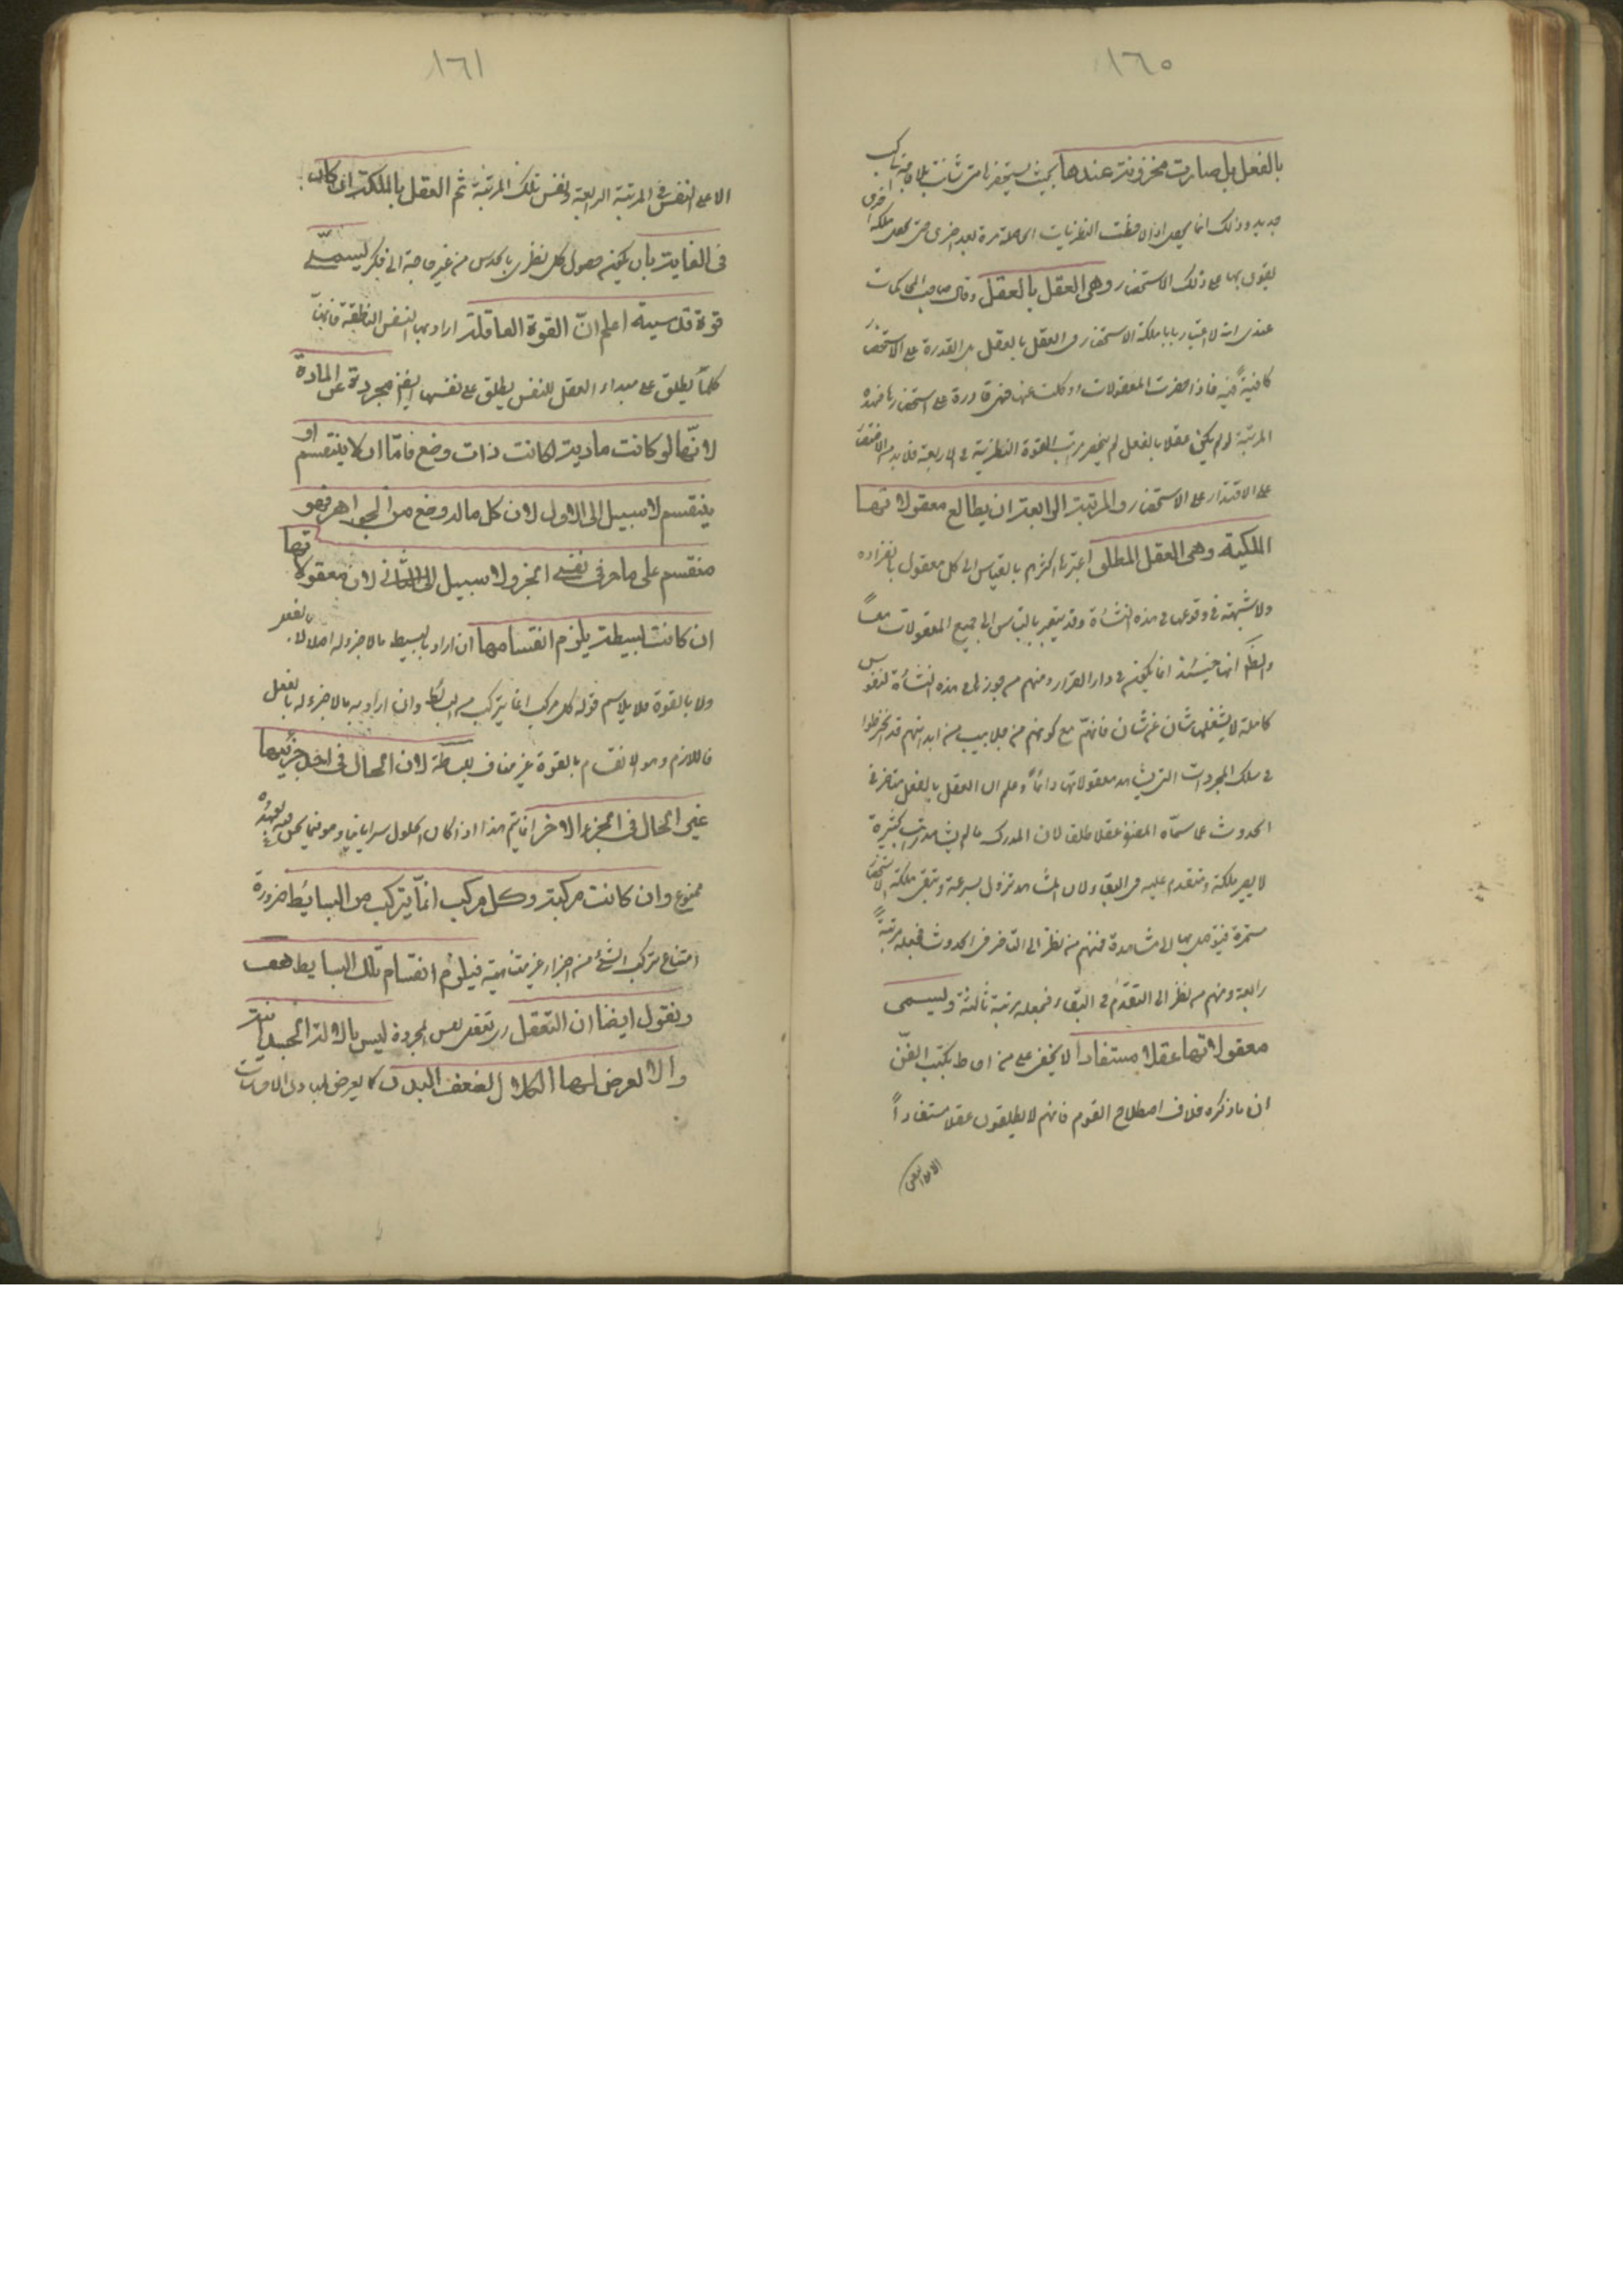 ١٦٠
بالفعل بل صارت مخزونة عندها بحيث يستحضرها متى شائت بلا حاجة الى كسب
جديد وذلك انما يحصل اذا لاحظت النظريات الحاصلة مرة بعد اخرى حتى يحصل ملكة اخرى
يقوى بها على ذلك الاستحضار وهى العقل بالعقل وقال صاحب المحاكمات
عندى انه لا اعتبار بملكة الاستحضار فى العقل بالعقل بل القدرة على الاستحضار
كافية فيه فاذا حضرت المعقولات وذهلت عنها فهى قادرة على استحضارها فهذه
المرتبة لو لم يكن عقلا بالفعل لم ينحصر مراتب القوة النظرية فى الاربعة فلا بد من الاقتصار
على الاقتدار على الاستحضار والمرتبة الرابعة ان يطالع معقولاتها
الملكية وهى العقل المطلق اعتبرها اكثرهم بالقياس الى كل معقول بانفراده
ولا شبهة فى وقوعها فى هذه النشاة وقد يعتبر بالقياس الى جميع المعقولات معاً
والظاهر انها حينئذ انما يكون فى دار القرار ومنهم من جوزها فى هذه النشأة لنفوس
كاملة لا يشغلها شان عن شان فانهم مع كونهم فى جلابيب من ابدانهم قد انخرطوا
فى سلك المجردات التى يشاهد معقولاتها دائماً وعلم ان العقل بالفعل متاخر فى
الحدوث عما سماه المصنف عقلا مطلقا لان المدرك ما لم يشاهد مرات كثيرة
لا يصير ملكة ومتقدم عليه فى البقاء لان المشاهد تزول بسرعة وتبقى ملكة الاستحضار
مستمرة فيتوصل بها الى مشاهدة فمنهم من نظر الى التاخر فى الحدوث فجعله مرتبة
رابعة ومنهم من نظر الى التقدم فى البقاء فجعله مرتبة ثالثة ويسمى
معقولاتها عقلا مستفادا لا يخفى على من احاط بكتب الفن
ان ما ذكره خلاف اصطلاح القوم فانهم لا يطلقون عقلا مستفاداً
١٦١
الا على النفس فى المرتبة الرابعة ونفس تلك المرتبة ثم العقل بالملكة ان كان
فى الغاية بان يكون حصول كل نظرى بالحدس من غير حاجة الى فكر يسمى
قوة قدسية اعلم انّ القوة العاقلة اراد بها النفس الناطقة فانها
كما يطلق على مبداء العقل للنفس يطلق على نفسها ايضا مجردة عن المادة
لانّها لو كانت مادية لكانت ذات وضع فامّا ان لا ينقسم او
ينقسم لا سبيل الى الاول لان كل ماله وضع من الجواهر فهو
منقسم على ما مر فى نفى الجزء ولا سبيل الى الثانى لان معقولاتها
ان كانت بسيطة يلزم انقسامها ان اراد بالبسيط ما لا جزء له اصلا لا بالفعل
ولا بالقوة فلا يلايم قوله كل مركب انما يتركب من البسائط وان اراد به ما لا جزء له بالفعل
فاللازم وهو الانقسام بالقوة غير مناف لبساطة لان الحال فى احد جزئيها
غير الحال فى الجزء الاخر انما يتم هذا اذا كان الحلول سريانيا وهو فيما نحن فيه
ممنوع وان كانت مركبة وكل مركب انمّا يتركب من البسايط ضرورة
امتناع تركب الشئ من اجزاء غير متناهية فيلزم انقسام تلك البسايط هف
ونقول ايضا ان التعقل اى تعقل النفس المجردة ليس بالالة الجسمانية
والا لعرض لها الكلال لضعف البدن كما يعرض لمبادى الاحساسات